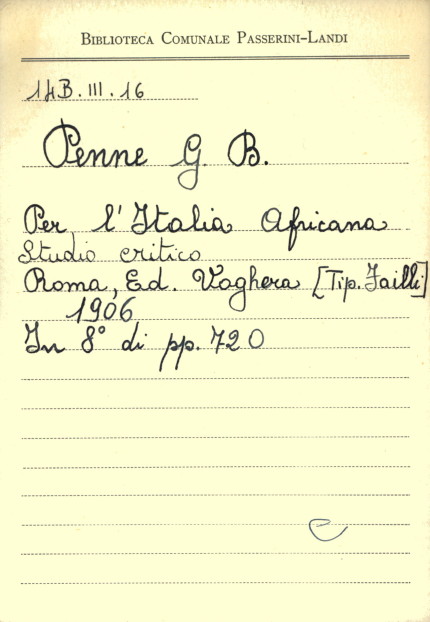 BIBLIOTECA COMUNALE PASSERINI-LANDI
14B.III.16
Penne G. B.
Per l'Italia Africana
Studio critico
Roma, Ed. Voghera [Tip. Failli]
1906
In 8° di pp. 720